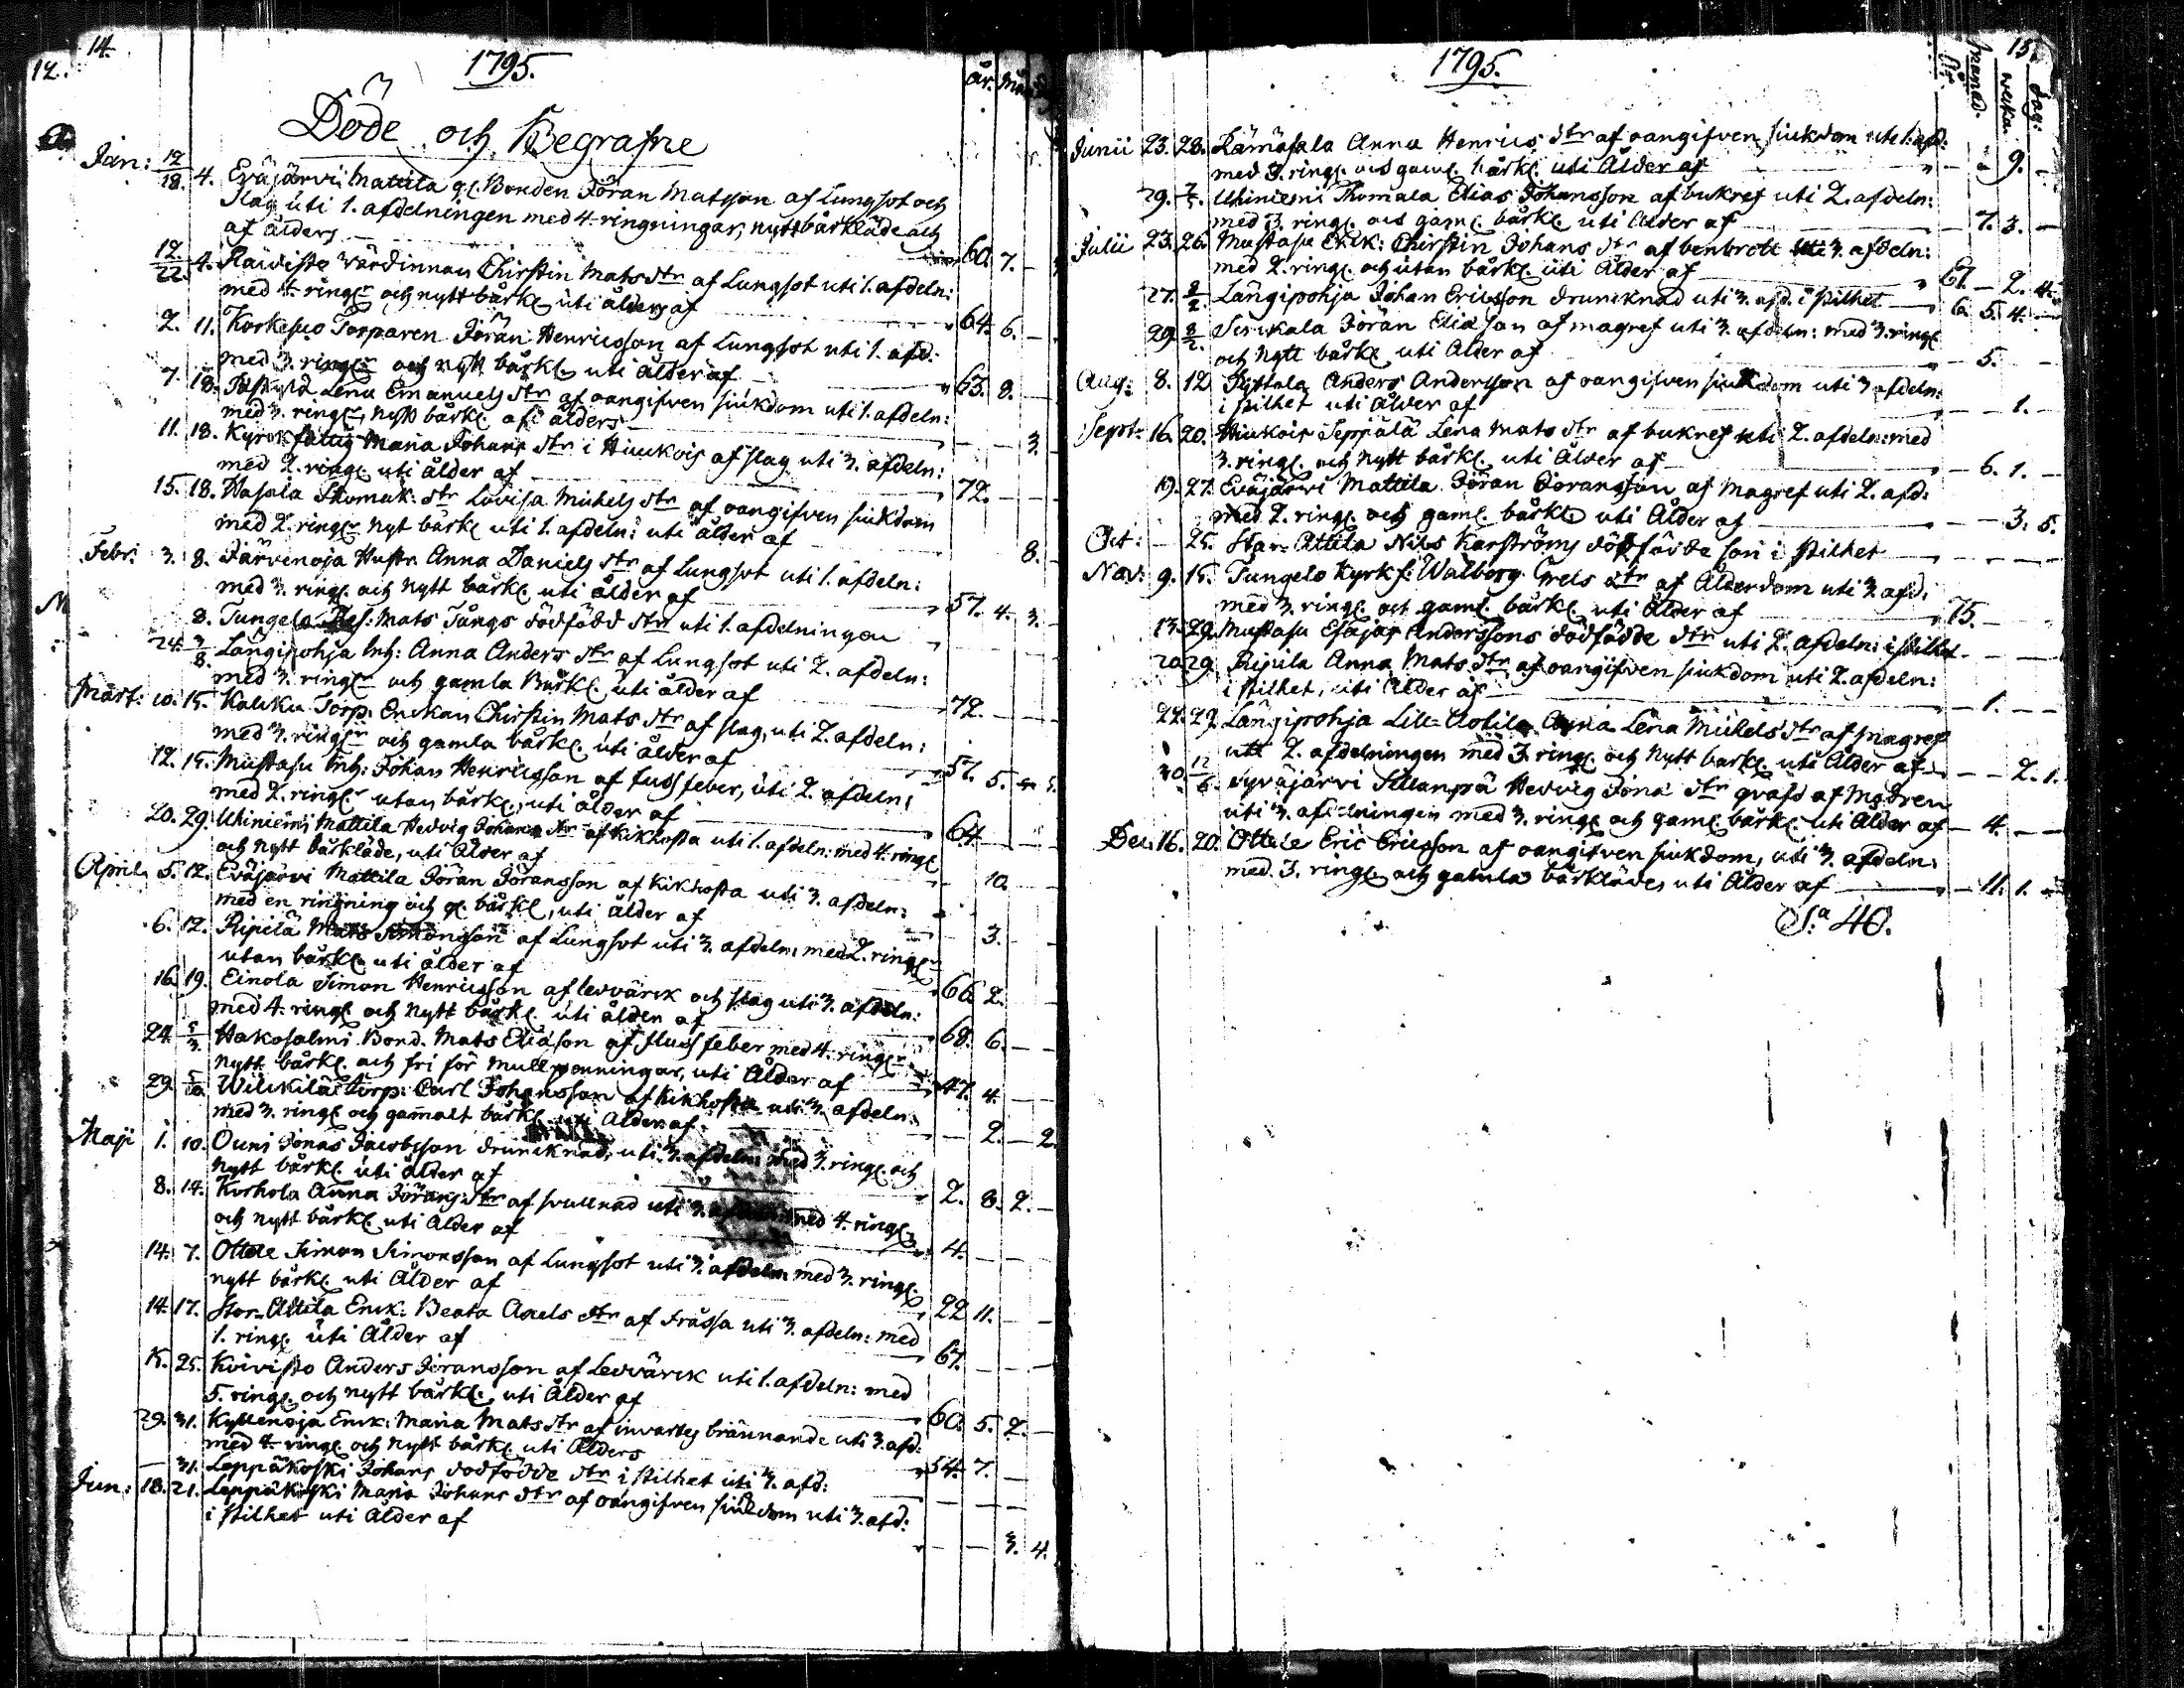 14.
12.
1795.
år. Mån
Döde och Begrafne
Jan: 12/18. 4. Eväjärvi Mattila gl. Bonden Jöran Matsson af Lungsot och
slag uti 1. afdelningen med 4 ringningar, nytt bårkläde och
af ålders 60. 7. –
12./22. 4. Räivistö värdinnan Chirstin Mats dtr af Lungsot uti 1. afdeln:
med 4. ringr och nytt bårkl uti ålders af 64. 6. –
2. 11. Korkesuo Torparen Jöran Henricsson af Lungsot uti 1. afd:
med 3. ringr och nytt bårkl. uti ålder af 63. 8.
7. 18. Lena Emanuels dtr af oangifven siukdom uti 1. afdeln:
med 3. ringr nytt bårkl. af ålders – – 3. –
11. 18. Kyrkfattig Maria Johans dtr i Huukois af slag uti 3. afdeln:
med 2. ringl. uti ålder af 72. – –
15. 18. Hasala Skomak: dtr Lovisa Michels dtr af oangifven siukdom
med 2. ringr nyt bårkl uti 1. afdeln: uti ålder af 8. –
Febr: 3. 8. Järvenoja Hustr. Anna Daniels dtr af Lungsot uti 1. afdeln:
med 3. ringl. och nytt bårkl. uti ålder af 57. 4. 3. –
8. Tungelo Mats Tångs dödfödd dtr uti 1. afdelningen
24. 3/8. Långipohja Inh: Anna Anders dtr af Lungsot uti 2. afdeln:
med 3. ringr och gamla Bårkl. uti ålder af 72. – –
Mart: 10. 15. Kauku Torp: Enckan Chirstin Mats dtr af slag, uti 2. afdeln:
med 3. ringr och gamla bårkl. uti ålder af 57. 5.
12. 15. Mustasu Inh: Johan Henricsson af fluss feber, uti 2. afdeln:
med 2. ringr utan bårkl, uti ålder af 64. – –
20. 29. Uhiniemi Mattila Hedvig Johans dtr af Kikhosta uti 1. afdeln: med 4. ringl
och nytt bårkläde, uti Ålder af – 10. –
April 5. 12. Eväjärvi Mattila Jöran Jöransson af Kikhosta uti 3. afdeln:
med en ringning och gl. bårkl, uti ålder af – 3. –
6. 12. Ripilä Mats Simonsson af Lungsot uti 3. afdeln: med 2. ringr
utan bårkl. uti ålder af 66. 2. –
16. 19. Einola Simon Henricsson af ledvärck och slag uti 3. afdeln:
med 4. ringl och nytt bårkl. uti ålder af 68. 6. –
24. 5/3. Hakosalmi Bond. Mats Eliasson af fluss feber med 4. ringr
nytt bårkl. och fri för mullpenningar, uti Ålder af 47. 4. –
29. 5/10. Wilickilä Torp: Carl Johansson af Kikhosta uti 3. afdeln:
med 3. ringl och gamalt bårkl. uti Ålder af – 2. – 2.
Maji 1. 10. Ouni Jonas Jacobsson druncknad, uti 3. afdeln: med 3. ringl. och
nytt bårkl. uti ålder af 2. 8. 2. –
8. 14. Korhola Anna Jörans dtr af svullnad uti 3. med 4. ringl
och nytt bårkl. uti Ålder af 4. – –
14. 7. Ottele Simon Simonsson af Lungsot uti 3. afdeln: med 3. ringl.
nytt bårkl uti Ålder af 22 11. –
14. 17. Stor-Attila Enck: Beata Axels dtr af Frossa uti 3. afdeln: med
1. ringl. uti Ålder af 67. – –
15. 25. Koivisto Anders Jöransson af Ledvärck uti 1. afdeln: med
5. ringl. och nytt bårkl. uti Ålder af 60. 5. 2. –
29. 31. Kyllenoja Enck: Maria Mats dtr af invartes brännande uti 3. afd:
med 4 ringl. och nytt bårkl. uti Ålders 54. 7. –
– 31. Leppäkoski Johans dödfödde dtr i stilhet uti 3. afd:
Jun: 18. 21. Leppäkoski Maria Johans dtr af oangifven siukdom uti 3. afd:
i stilhet uti Ålder af – – 3. 4.
15.
1795.
År. Månad. wecka. Dag:
Junii 23. 28. Rämäsala Anna Henrics dtr af oangifven siukdom uti 1. afd:
med 3. ringl. och gaml. bårkl. uti Ålder af – 9. –
29. 7/5. Uhiniemi Thomala Elias Johansson af bukref uti 2. afdeln:
med 3. ringl. och gaml. bårkl. uti Ålder af – 7. 3. –
Julii 23. 26. Mustasu Enck: Chirstin Johans dtr af benbrott uti 3. afdeln:
med 2. ringl. och utan bårkl. uti Ålder af 67. – 2. 4.
27. 8/2. Långipohja Johan Ericsson druncknad uti 3. afd. i stilhet 6. 5. 4. –
29. 8/2. Sirckala Jöran Eliasson af magref uti 3. afdeln: med 3. ringl
och nytt bårkl. uti Ålder af – 5. –
Aug: 8. 12. Anders Andersson af oangifven siukdom uti 3 afdeln:
i stilhet uti Ålder af – – 1. –
Sept: 16. 20. Huukois Seppälä Lena Mats dtr af bukref uti 2. afdeln: med
3. ringl. och nytt bårkl. uti Ålder af – 6. 1. –
19. 27. Eväjärvi Mattila Jöran Göransson af Magref uti 2. afd:
med 2. ringl. och gaml. bårkl. uti Ålder af – – 3. 5.
Oct: – 25. Stor-Attila Nils Karströms dödfödde son i stilhet
Nov: 9. 15. Tungelo Kyrkf: Walborg Grels dtr af Ålderdom uti 3. afd.
med 3. ringl. och gaml. bårkl. uti Ålder af 75. – –
13. 29. Mustasu Esaias Anderssons dödfödde dtr uti 2. afdeln: i stilhet – – –
20. 29. Ripila Anna Mats dtr af oangifven siukdom uti 2. afdeln:
i stilhet, uti Ålder af – 1. – –
22. 29. Långipohja Lill-Attila Anna Lena Michels dtr af magref
uti 2. afdelningen med 3. ringl. och nytt bårkl. uti Ålder af – – 2. 1.
30. 12/6. Syväjärvi Sillanpä Hedvig Jona dtr qvafd af Modren
uti 3. afdelningen med 3. ringl och gaml. bårkl. uti Ålder af – 4. – –
Dec: 16. 20. Ottele Eric Ericsson af oangifven siukdom, uti 3. afdeln:
med 3. ringl. och gamla bårkläde, uti Ålder af – 11. 1. –
S:a 40.